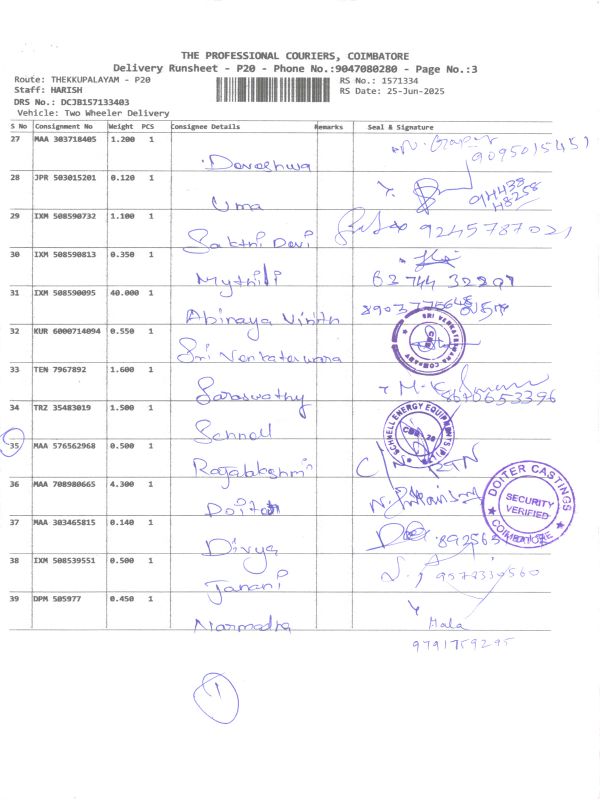 THE PROFESSIONAL COURIERS, COIMBATORE
Delivery Runsheet - P20 - Phone No.:9047080280 - Page No.:3
Route: THEKKUPALAYAM - P20
RS No.: 1571334
Staff: HARISH
RS Date: 25-Jun-2025
DRS No.: DCJB157133403
Vehicle: Two Wheeler Delivery
S No Consignment No Weight PCS Consignee Details Remarks Seal & Signature
27 MAA 303718405 1.200 1
Daveshwa 9095015451
28 JPR 503015201 0.120 1
Uma
29 IXM 508590732 1.100 1
Sakthi Devi 9245787021
30 IXM 508590813 0.350 1
Mythili 62744 32297
31 IXM 508590095 40.000 1
Abinaya Vinith
32 KUR 6000714094 0.550 1
SRI VENKATESWARA COMPANY
CBE
Sri Venkateswara
33 TEN 7967892 1.600 1
Saraswathy 8670653396
34 TRZ 35483019 1.500 1
SCHNELL ENERGY EQUIPMENTS (P) LTD
CBE - 20
Schnell
35 MAA 576562968 0.500 1
Rajalakshmi RTN
36 MAA 708980665 4.300 1
DOITER CASTINGS
SECURITY VERIFIED
COIMBATORE
Doiter
37 MAA 303465815 0.140 1
Divya
38 IXM 508539551 0.500 1
Janani 9577330560
39 DPM 505977 0.450 1
Narmadha Mala
9791759295
1